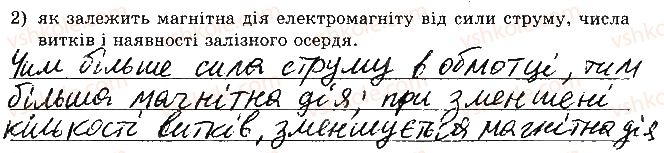 2) як залежить магнітна дія електромагніту від сили струму, числа
витків і наявності залізного осердя.
Чим більше сила струму в обмотці, тим
більша магнітна дія; при зменшені
кількості витків, зменшується магнітна дія